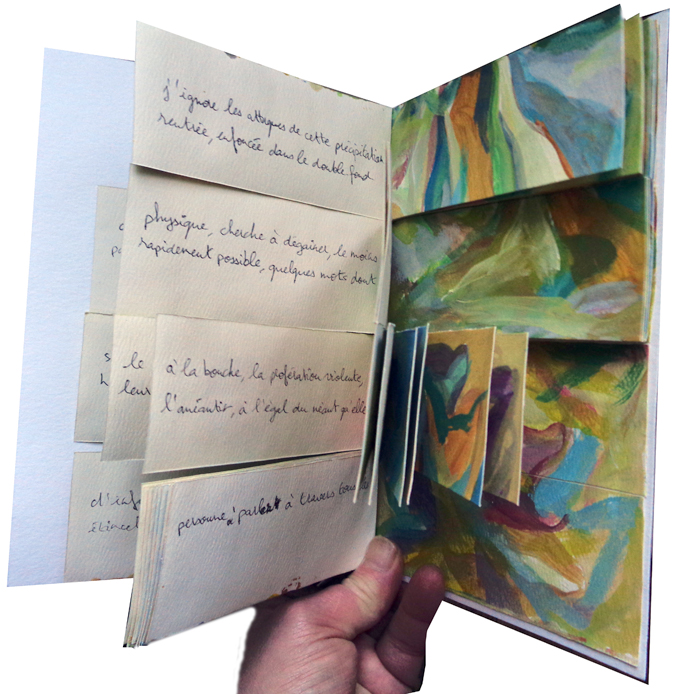 j'ignore les attaques de cette précipitation
rentrée, enfoncée dans le double fond
physique, cherche à dégainer, le moins
rapidement possible, quelques mots dont
le
leur
à la bouche, la profération violente,
l'anéantir, à l'égal du néant qu'elle
personne à parler à travers